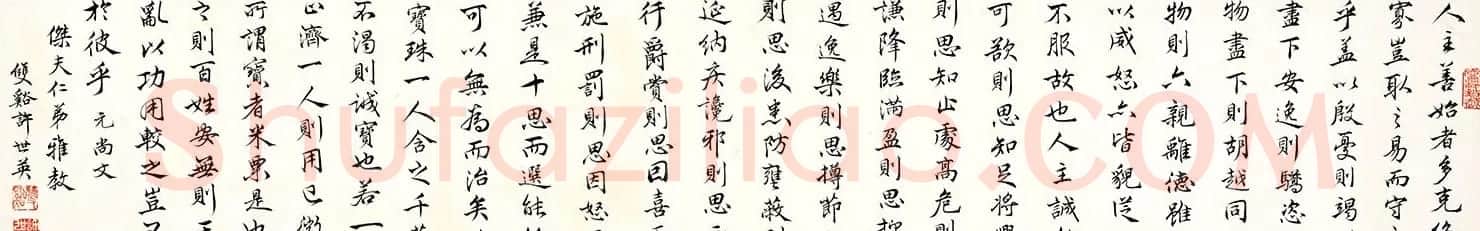 人主善始者多克
寡豈取之易而守
乎蓋以殷憂則竭
盡下安逸則驕恣
物盡下則胡越同
物則六親離德雖
以威怒亦皆貌從
不服故也人主誠
可欲則思知足將
則思知止處高危則
謙降臨滿盈則思
遇逸樂則思撙節
則思後患防壅蔽
延納疾讒邪則思
行爵賞則思因喜
施刑罰則思因怒
兼是十思而選能
可以無為而治矣
寶珠一人含之千
不渴則誠寶也若一
止濟一人則用已微
所謂寶者米粟是
之則百姓安無則
亂以功用較之豈
於彼乎 元尚文
傑夫仁弟雅教
雙谿許世英
Shufaziliao.COM